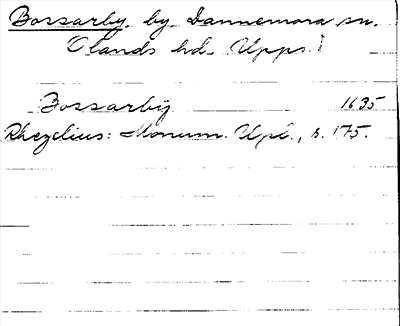 Bossarby, by, Dannemora sn.
Olands hd. Upps. l
Bossarbij 1635
Rhezelius: Monum. Upl., s. 175.